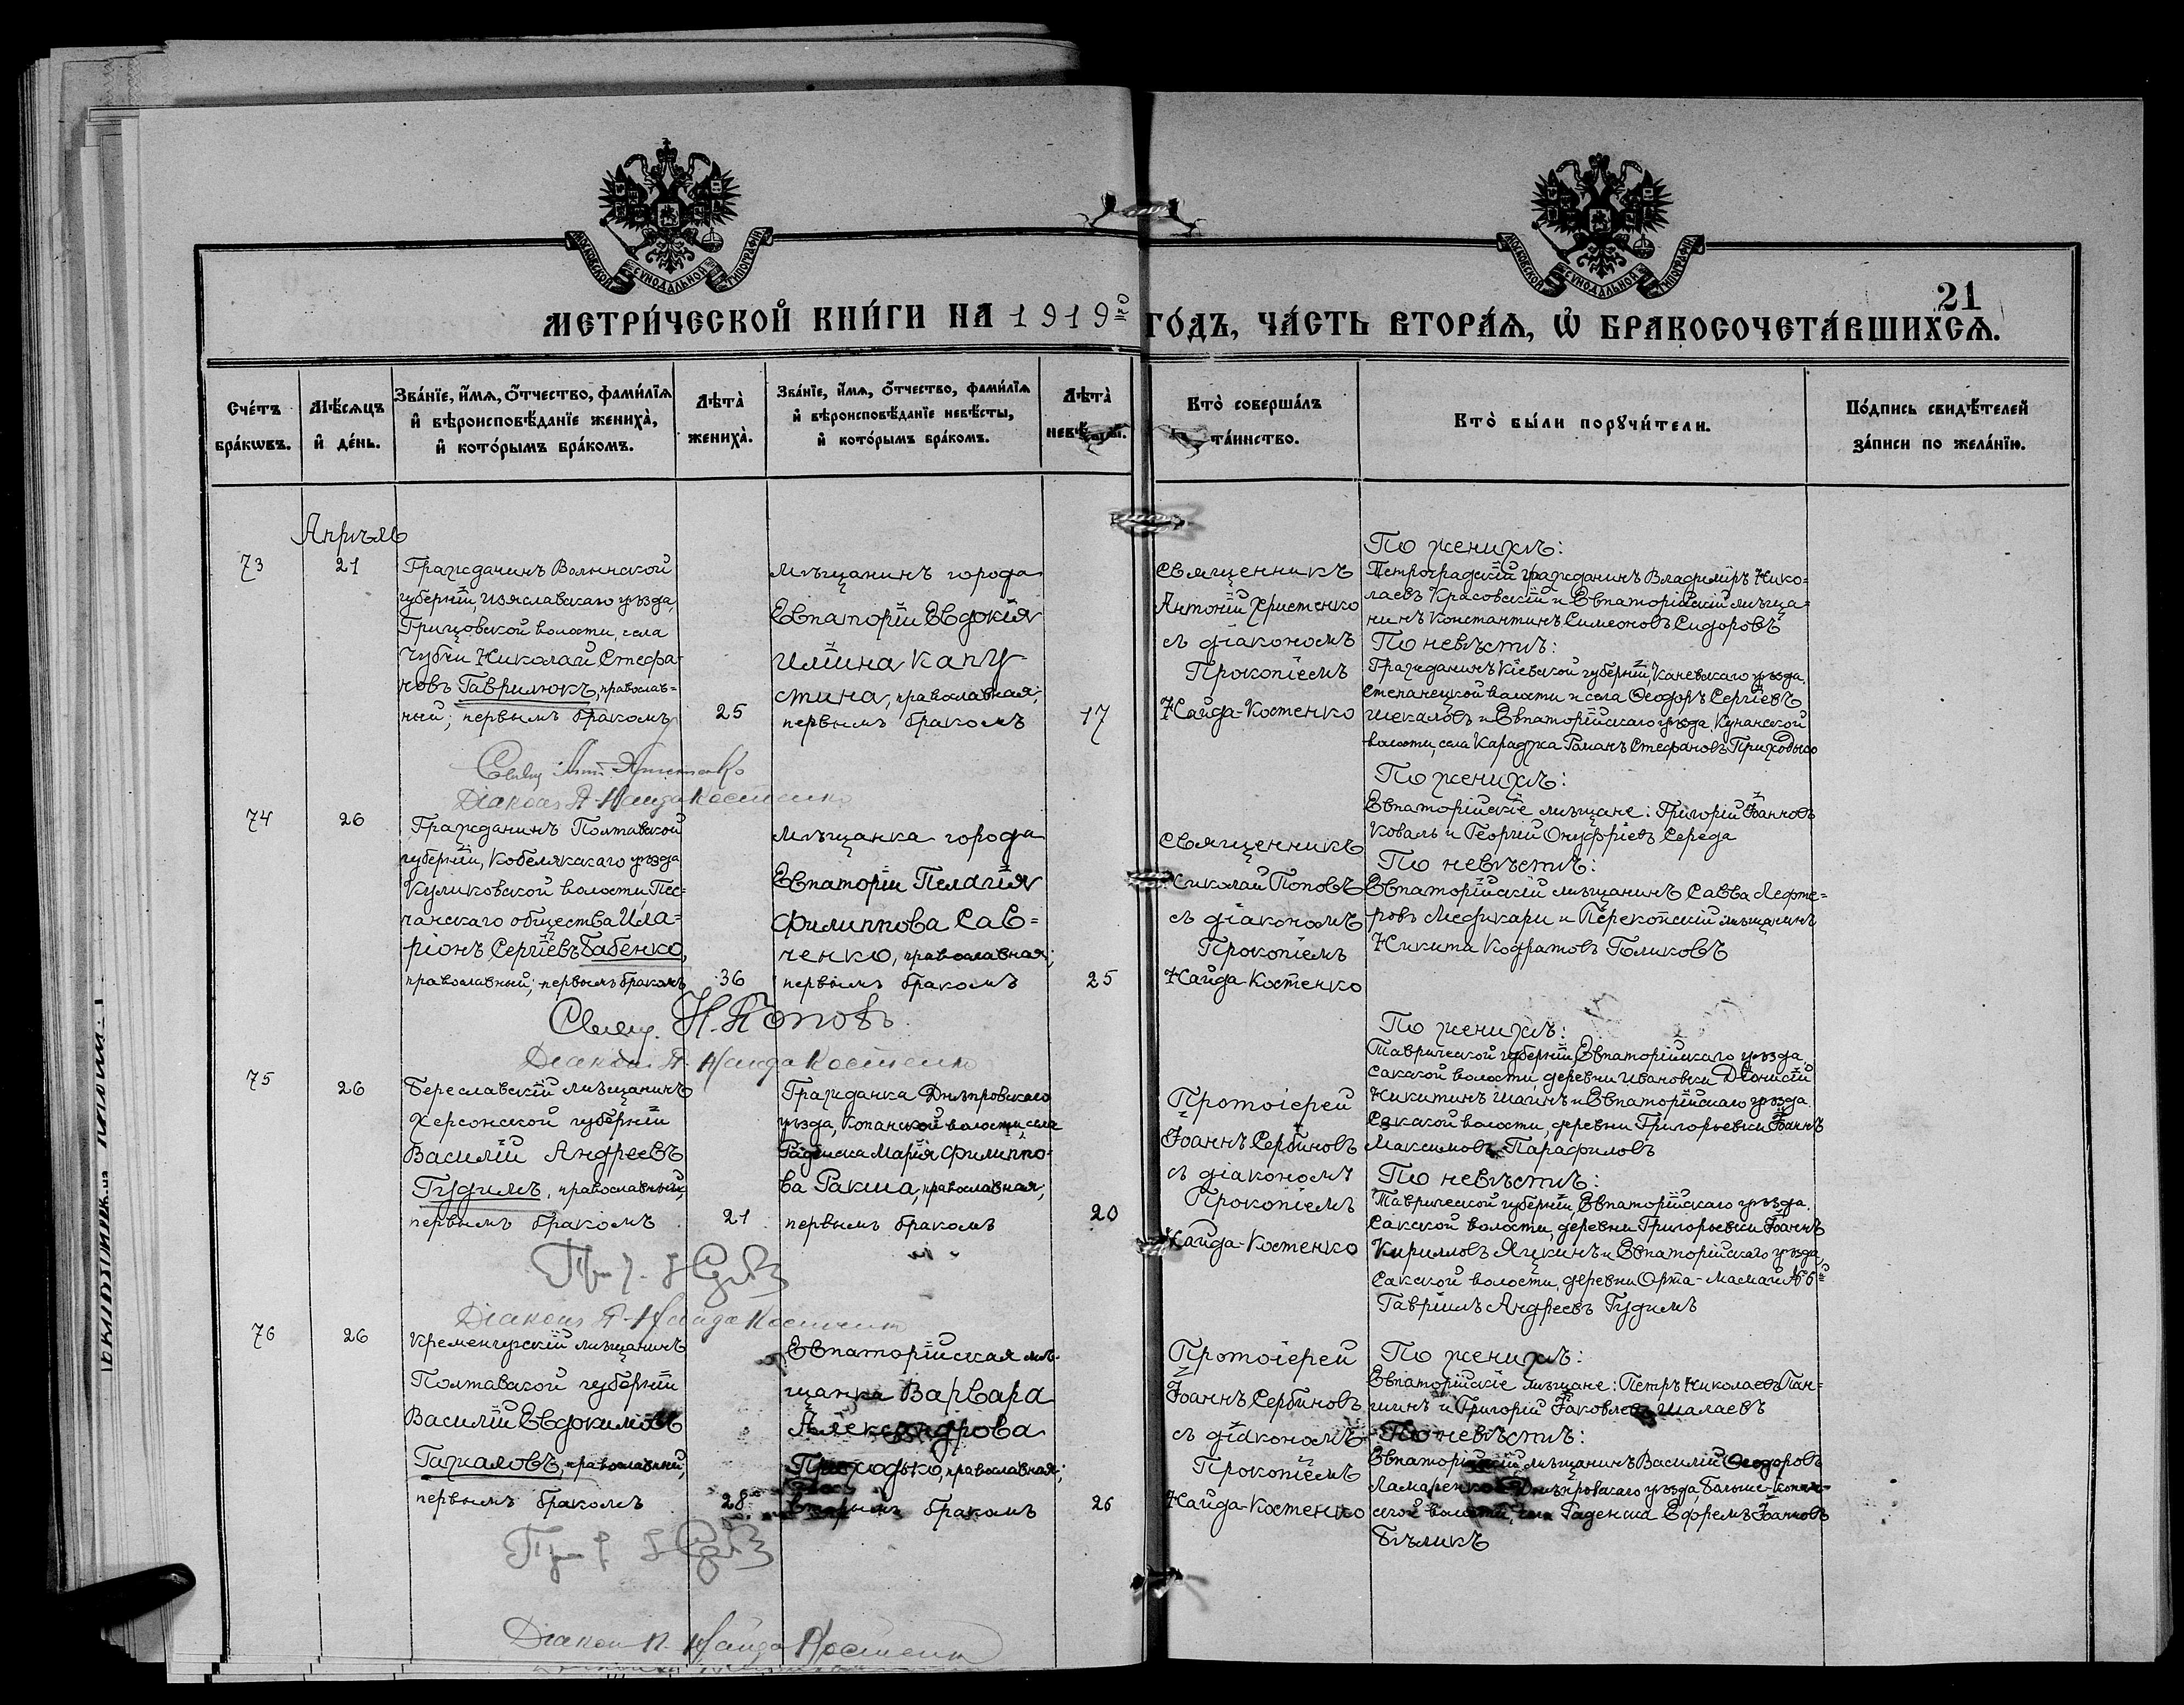 МОСКОВСКОЙ СѴНОДАЛЬНОЙ ТИПОГРАФІИ
МОСКОВСКОЙ СѴНОДАЛЬНОЙ ТИПОГРАФІИ
21
МЕТРИ́ЧЕСКОЙ КНИ́ГИ НА 1919й ГО́ДЪ, ЧА́СТЬ ВТОРА́Ѧ, Ѽ БРАКОСОЧЕТА́ВШИХСѦ.
Сче́тъ бра́кѡвъ.
Мѣ́сѧцъ и҆ де́нь.
Зва́нїе, и҆́мѧ, ѻ҆́тчество, фами́лїѧ и҆ вѣроисповѣ́данїе жениха̀, и҆ кото́рымъ бра́комъ.
Лѣта̀ жениха̀.
Зва́нїе, и҆́мѧ, ѻ҆́тчество, фами́лїѧ и҆ вѣроисповѣ́данїе невѣ́сты, и҆ кото́рымъ бра́комъ.
Лѣта̀ невѣ́сты.
Кто̀ соверша́лъ та́инство.
Кто̀ бы́ли порꙋчи́тели.
По́дпись свидѣ́телей за́писи по жела́нїю.
Апрѣль
73
21
Гражданинъ Волынской
губерніи, Изяславскаго уѣзда,
Грицовской волости, села
Чубчи Николай Стефа-
новъ Гаврилюкъ, православ=
ный; первымъ бракомъ
25
мѣщанинъ города
Евпаторіи Евдокія
Иліина Капу-
стина, православная;
первымъ бракомъ
17
Священникъ
Антоній Христенко
съ діакономъ
Прокопіемъ
Найда-Костенко
По женихѣ:
Петроградскій гражданинъ Владиміръ Нико=
лаевъ Красовскій и Евпаторійскій мѣща=
нинъ Константинъ Симеоновъ Сидоровъ
По невѣстѣ:
Гражданинъ Кіевской губерніи, Каневскаго уѣзда,
Степанецкой волости и села Ѳеодоръ Сергіевъ
Шекаловъ и Евпаторійскаго уѣзда, Кунанской
волости, села Караджа Романъ Стефановъ Приходько
Свящ. Ант. Христенко
Діаконъ П. Найда Костенко
74
26
Гражданинъ Полтавской
губерніи, Кобелякскаго уѣзда
Куликовской волости, Пес=
чанскаго общества Ила=
ріонъ Сергіевъ Бабенко,
православный; первымъ бракомъ
36
Мѣщанка города
Евпаторіи Пелагія
Филиппова Сав=
ченко, православная;
первымъ бракомъ
25
Священникъ
Николай Поповъ
съ діакономъ
Прокопіемъ
Найда-Костенко
По женихѣ:
Евпаторійскіе мѣщане: Григорій Іоанновъ
Коваль и Георгій Онуфріевъ Середа
По невѣстѣ:
Евпаторійскій мѣщанинъ Савва Лефте=
ровъ Мефикари и Перекопскій мѣщанинъ
Никита КодратовъГоликовъ
Свящ. Н. Поповъ
Діаконъ П. Найда Костенко
75
26
Береславскій мѣщанинъ
Херсонской губерніи
Василій Андреевъ
Гудимъ, православный,
первымъ бракомъ
21
Гражданка Днѣпровскаго
уѣзда, Копанской волости, села
Раденска Марія Филиппо-
ва Ракша, православная,
первымъ бракомъ
20
Протоіерей
Іоаннъ Сербиновъ
съ діакономъ
Прокопіемъ
Найда-Костенко
По женихѣ:
Таврической губерніи, Евпаторійскаго уѣзда,
Сакской волости, деревни Ивановки Діонисій
Никитинъ Шагинъ и Евпаторійскаго уѣзда
Сакской волости, деревни Григорьевки Іоаннъ
Максимовъ Парафиловъ
По невѣстѣ:
Таврической губерніи, Евпаторійскаго уѣзда,
Сакской волости, деревни Григорьевки Іоаннъ
Кирилловъ Ягкинъ и Евпаторійскаго уѣзда,
Сакской волости, деревни Орта-Мамай № 6й
Гавріилъ Андреевъ Гудимъ
Діаконъ П. Найда Костенко
76
26
Кременчугскій мѣщанинъ
Полтавской губерніи
Василій Евдокимовъ
Гажаловъ, православный,
первымъ бракомъ
28
Евпаторійская мѣ-
щанка Варвара
Александрова
Приходько, православная;
вторымъ бракомъ
26
Протоіерей
Іоаннъ Сербиновъ
съ діакономъ
Прокопіемъ
Найда-Костенко
По женихѣ:
Евпаторійскіе мѣщане: Петръ Николаевъ Пан=
шинъ и Григорій Іаковлевъ Шалаевъ
По невѣстѣ:
Евпаторійскій мѣщанинъ Василій Ѳеодоровъ
Ламаренко Днѣпровскаго уѣзда, Больше-Копан-
ской волости, села Раденска Ефремъ Іоанновъ
Бѣликъ
Діаконъ П. Найда Костенко